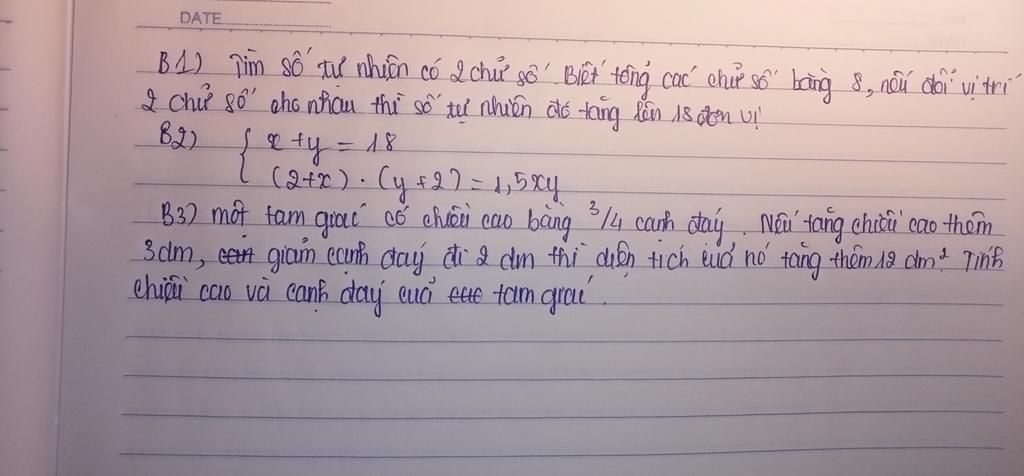 DATE
B1) Tìm số tự nhiên có 2 chữ số. Biết tổng các chữ số bằng 8, nếu đổi vị trí
2 chữ số cho nhau thì số tự nhiên đó tăng lên 18 đơn vị
B2) { x + y = 18
(2+x) . (y+2) = 1,5xy
B3) một tam giác có chiều cao bằng 3/4 cạnh đáy. Nếu tăng chiều cao thêm
3dm, giảm cạnh đáy đi 2 dm thì diện tích của nó tăng thêm 12 dm². Tính
chiều cao và cạnh đáy của tam giác.